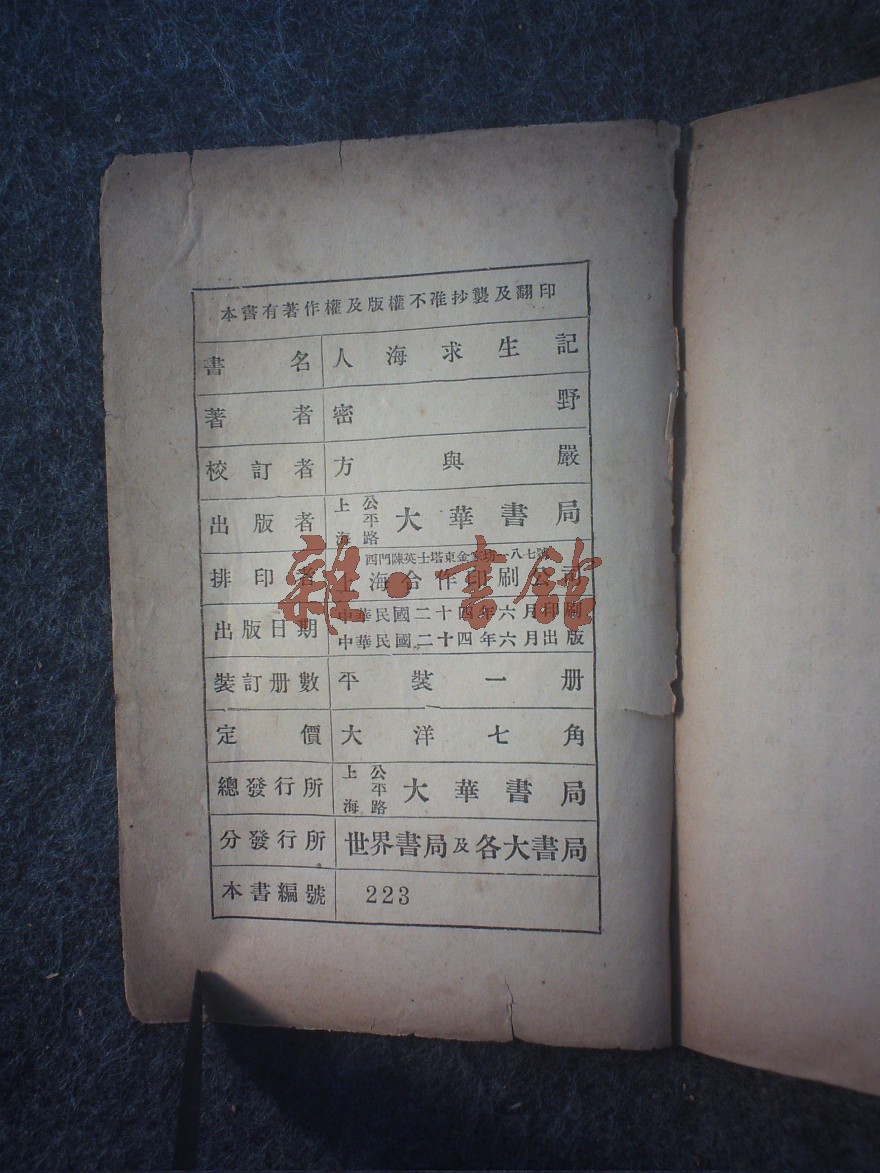 本書有著作權及版權不准抄襲及翻印
書名 人海求生記
著者 密野
校訂者 方與嚴
出版者 上海公平路 大華書局
排印者 西門陳英士塔東金家坊一八七號
上海合作印刷公司
出版日期 中華民國二十四年六月印刷
中華民國二十四年六月出版
裝訂册數 平裝一册
定價 大洋七角
總發行所 上海公平路 大華書局
分發行所 世界書局及各大書局
本書編號 223
雜·書館